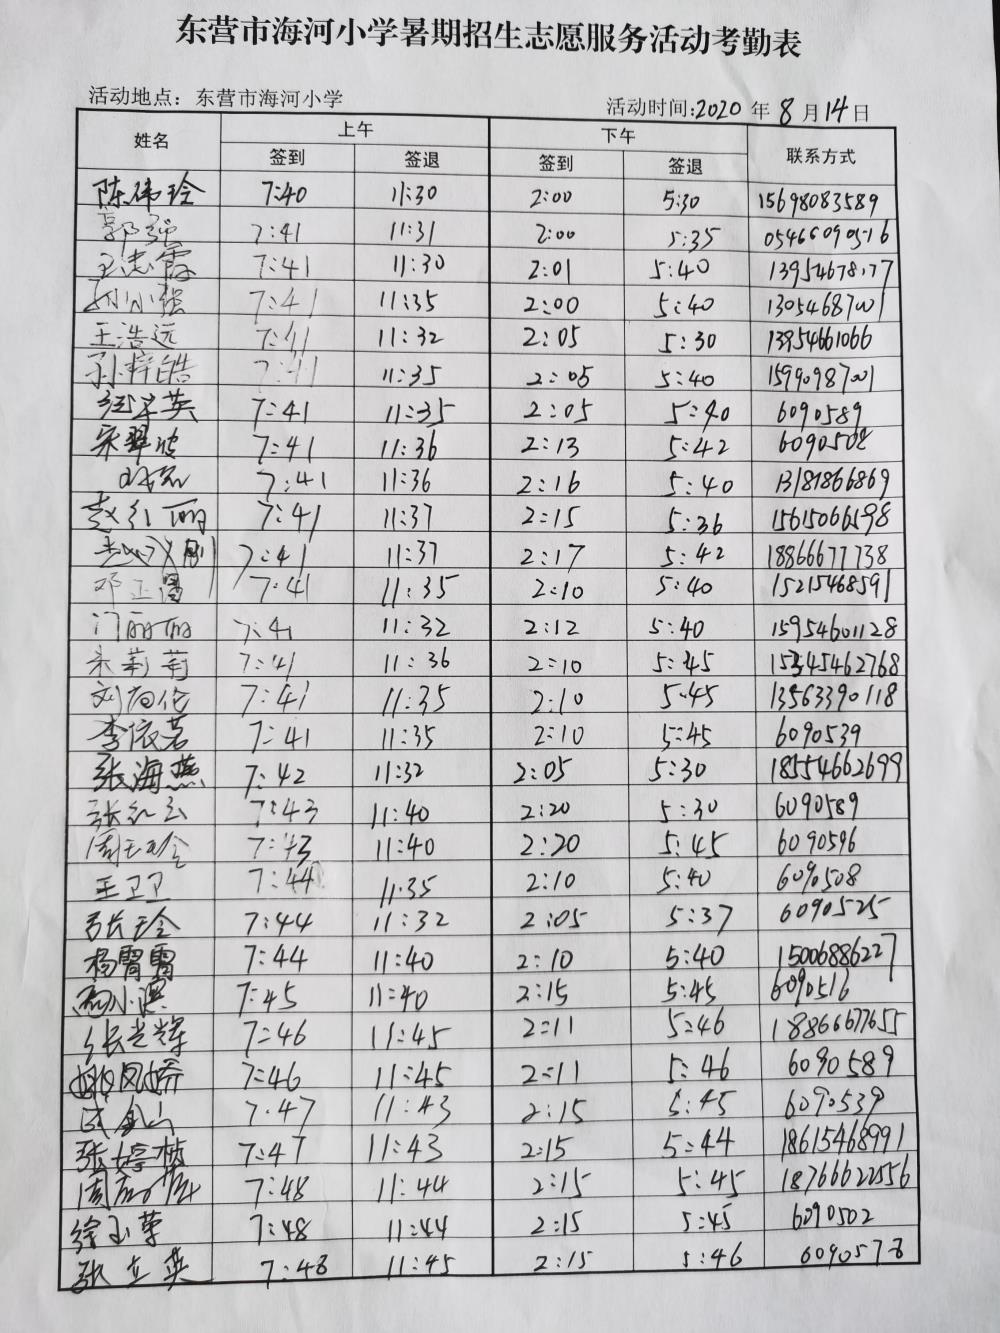 东营市海河小学暑期招生志愿服务活动考勤表
活动地点：东营市海河小学 活动时间:2020 年 8 月 14 日
姓名 上午 下午 联系方式
签到 签退 签到 签退
陈伟玲 7:40 11:30 2:00 5:30 15698083589
郭 7:41 11:31 2:00 5:35 05466090516
王志霞 7:41 11:30 2:01 5:40
孙小强 7:41 11:35 2:00 5:40 13054687001
王浩远 7:41 11:32 2:05 5:30 13954661066
孙梓皓 7:41 11:35 2:05 5:40 15990987001
英 7:41 11:35 2:05 5:40 6090589
宋翠 7:41 11:36 2:13 5:42 6090508
7:41 11:36 2:16 5:40 13181866869
赵红丽 7:41 11:37 2:15 5:36 15615066598
7:41 11:37 2:17 5:42 18866677738
邓 7:41 11:35 2:10 5:40 15215468591
门丽丽 7:41 11:32 2:12 5:40 15954601128
宋莉莉 7:41 11:36 2:10 5:45 15345462768
刘 伦 7:41 11:35 2:10 5:45 13563390118
李依若 7:41 11:35 2:10 5:45 6090539
张海燕 7:42 11:32 2:05 5:30 18554662699
张红云 7:43 11:40 2:20 5:30 6090589
周玉玲 7:43 11:40 2:20 5:45 6090596
王卫卫 7:44 11:35 2:10 5:40 6090508
张玲 7:44 11:32 2:05 5:37 6090525
杨霄霄 7:44 11:40 2:10 5:40 15006886227
小 7:45 11:40 2:15 5:45 6090516
张光辉 7:46 11:45 2:11 5:46 18866677655
姚凤娇 7:46 11:45 2:11 5:46 6090589
金山 7:47 11:43 2:15 5:45 6090539
张婷 7:47 11:43 2:15 5:44 18615468991
周 7:48 11:44 2:15 5:45 18766622556
徐玉荣 7:48 11:44 2:15 5:45 6090502
张立英 7:48 11:45 2:15 5:46 6090578